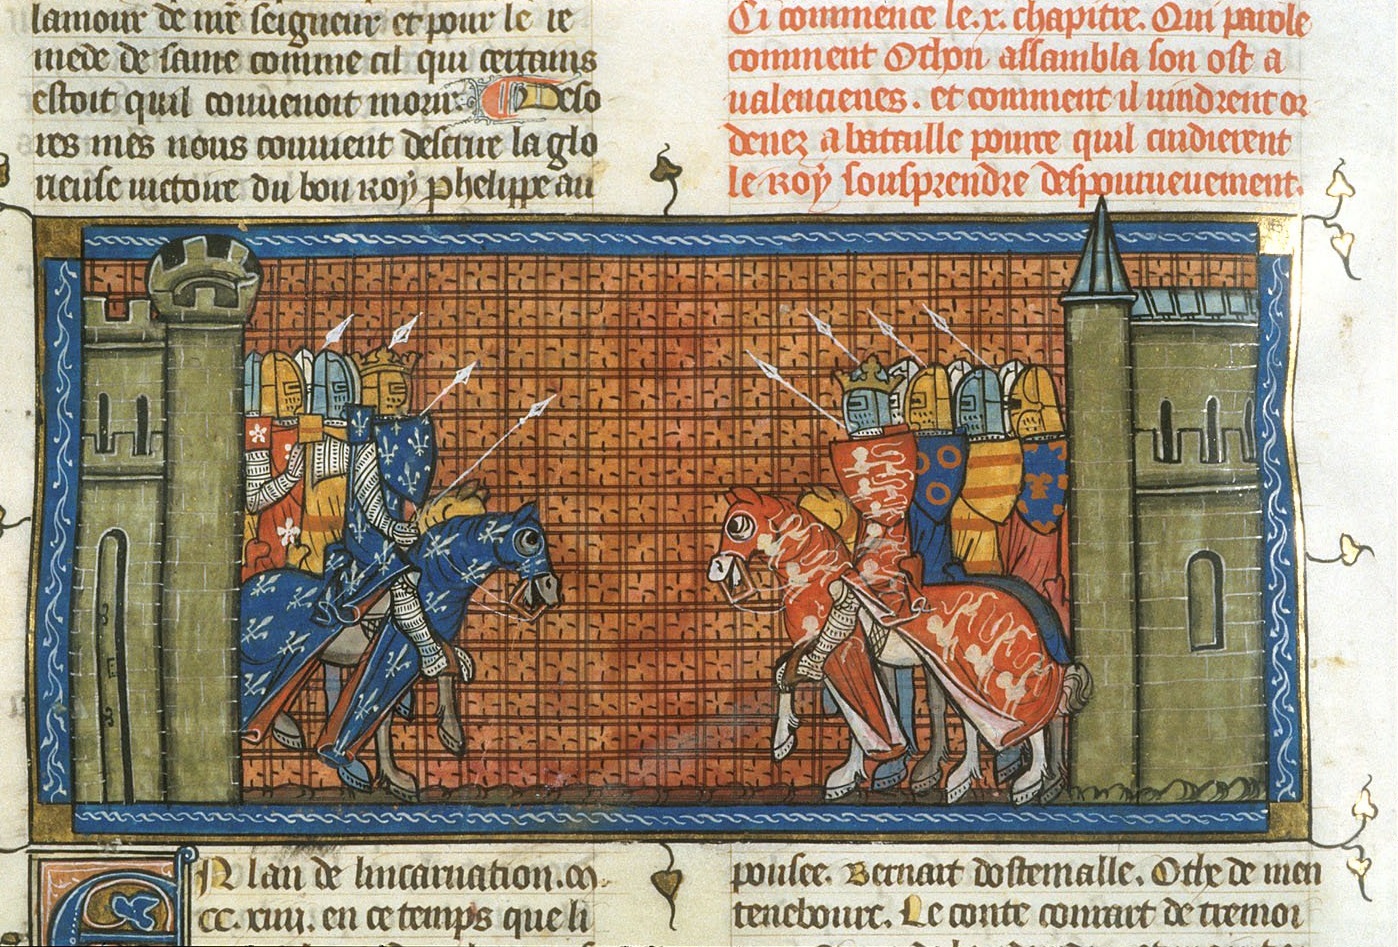 lamour de mẽ seigneur et pour le re
mede de same comme cil qui certains
estoit quil couuenoit morir. Deso
res mes nous couuient descrire la glo
rieuse uictoire du bon roy phelippe au
Ci commence le .x. chapitre. Qui parole
comment Othon assambla son ost a
ualencienes. et comment il uindrent or
denez a bataille pource quil cuidierent
le roy sousprendre despourueuement.
En lan de lincarnation .m.
cc. xiiii. en ce temps que li
ponsee. Bernart dostemalle. Othe de men
teneboure. Le conte conrart de tremoi